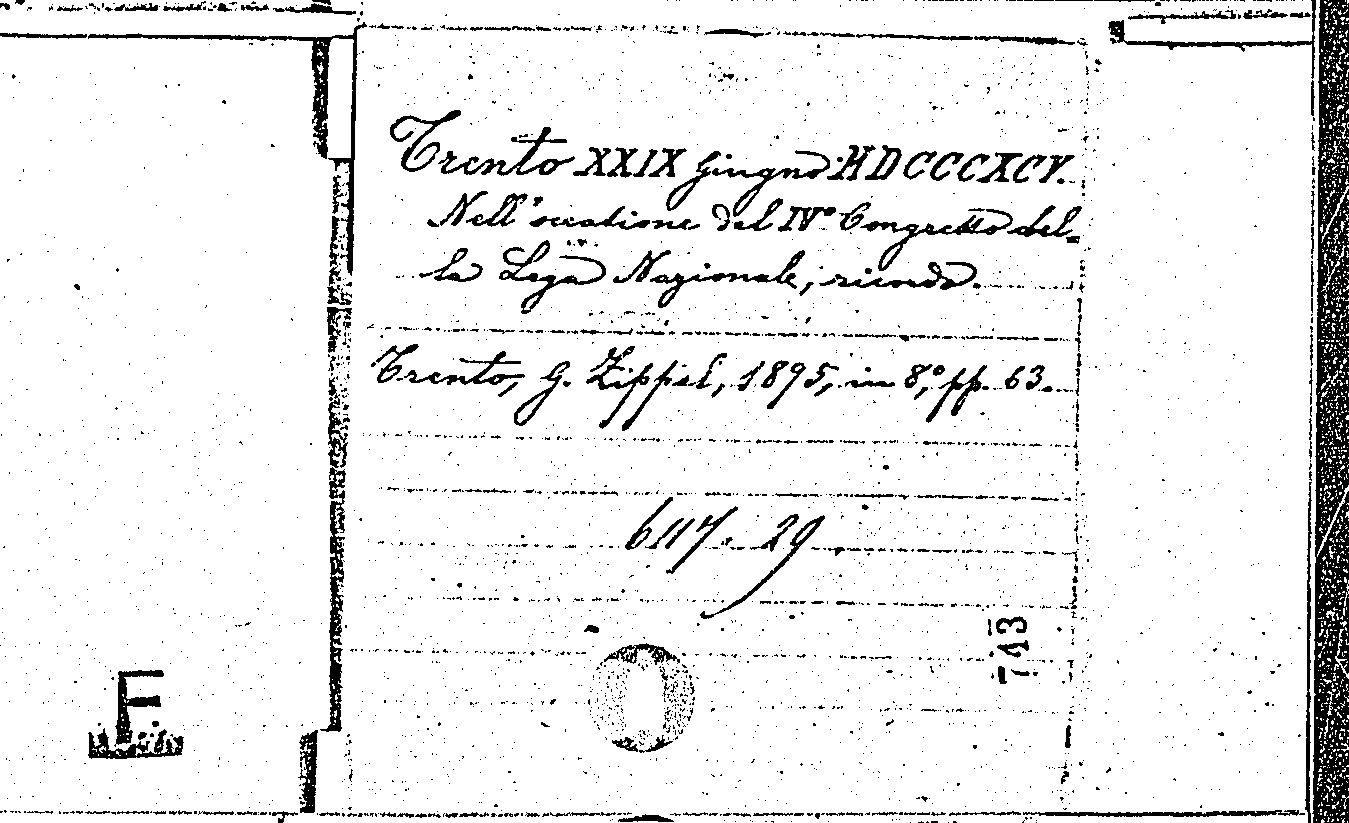 Trento XXIX Giugno MDCCCXCV.
Nell'occasione del IV° Congresso del-
la Lega Nazionale, ricordo.
Trento, G. Zippel, 1895, in 8°, pp. 63.
6117. 29
743
F